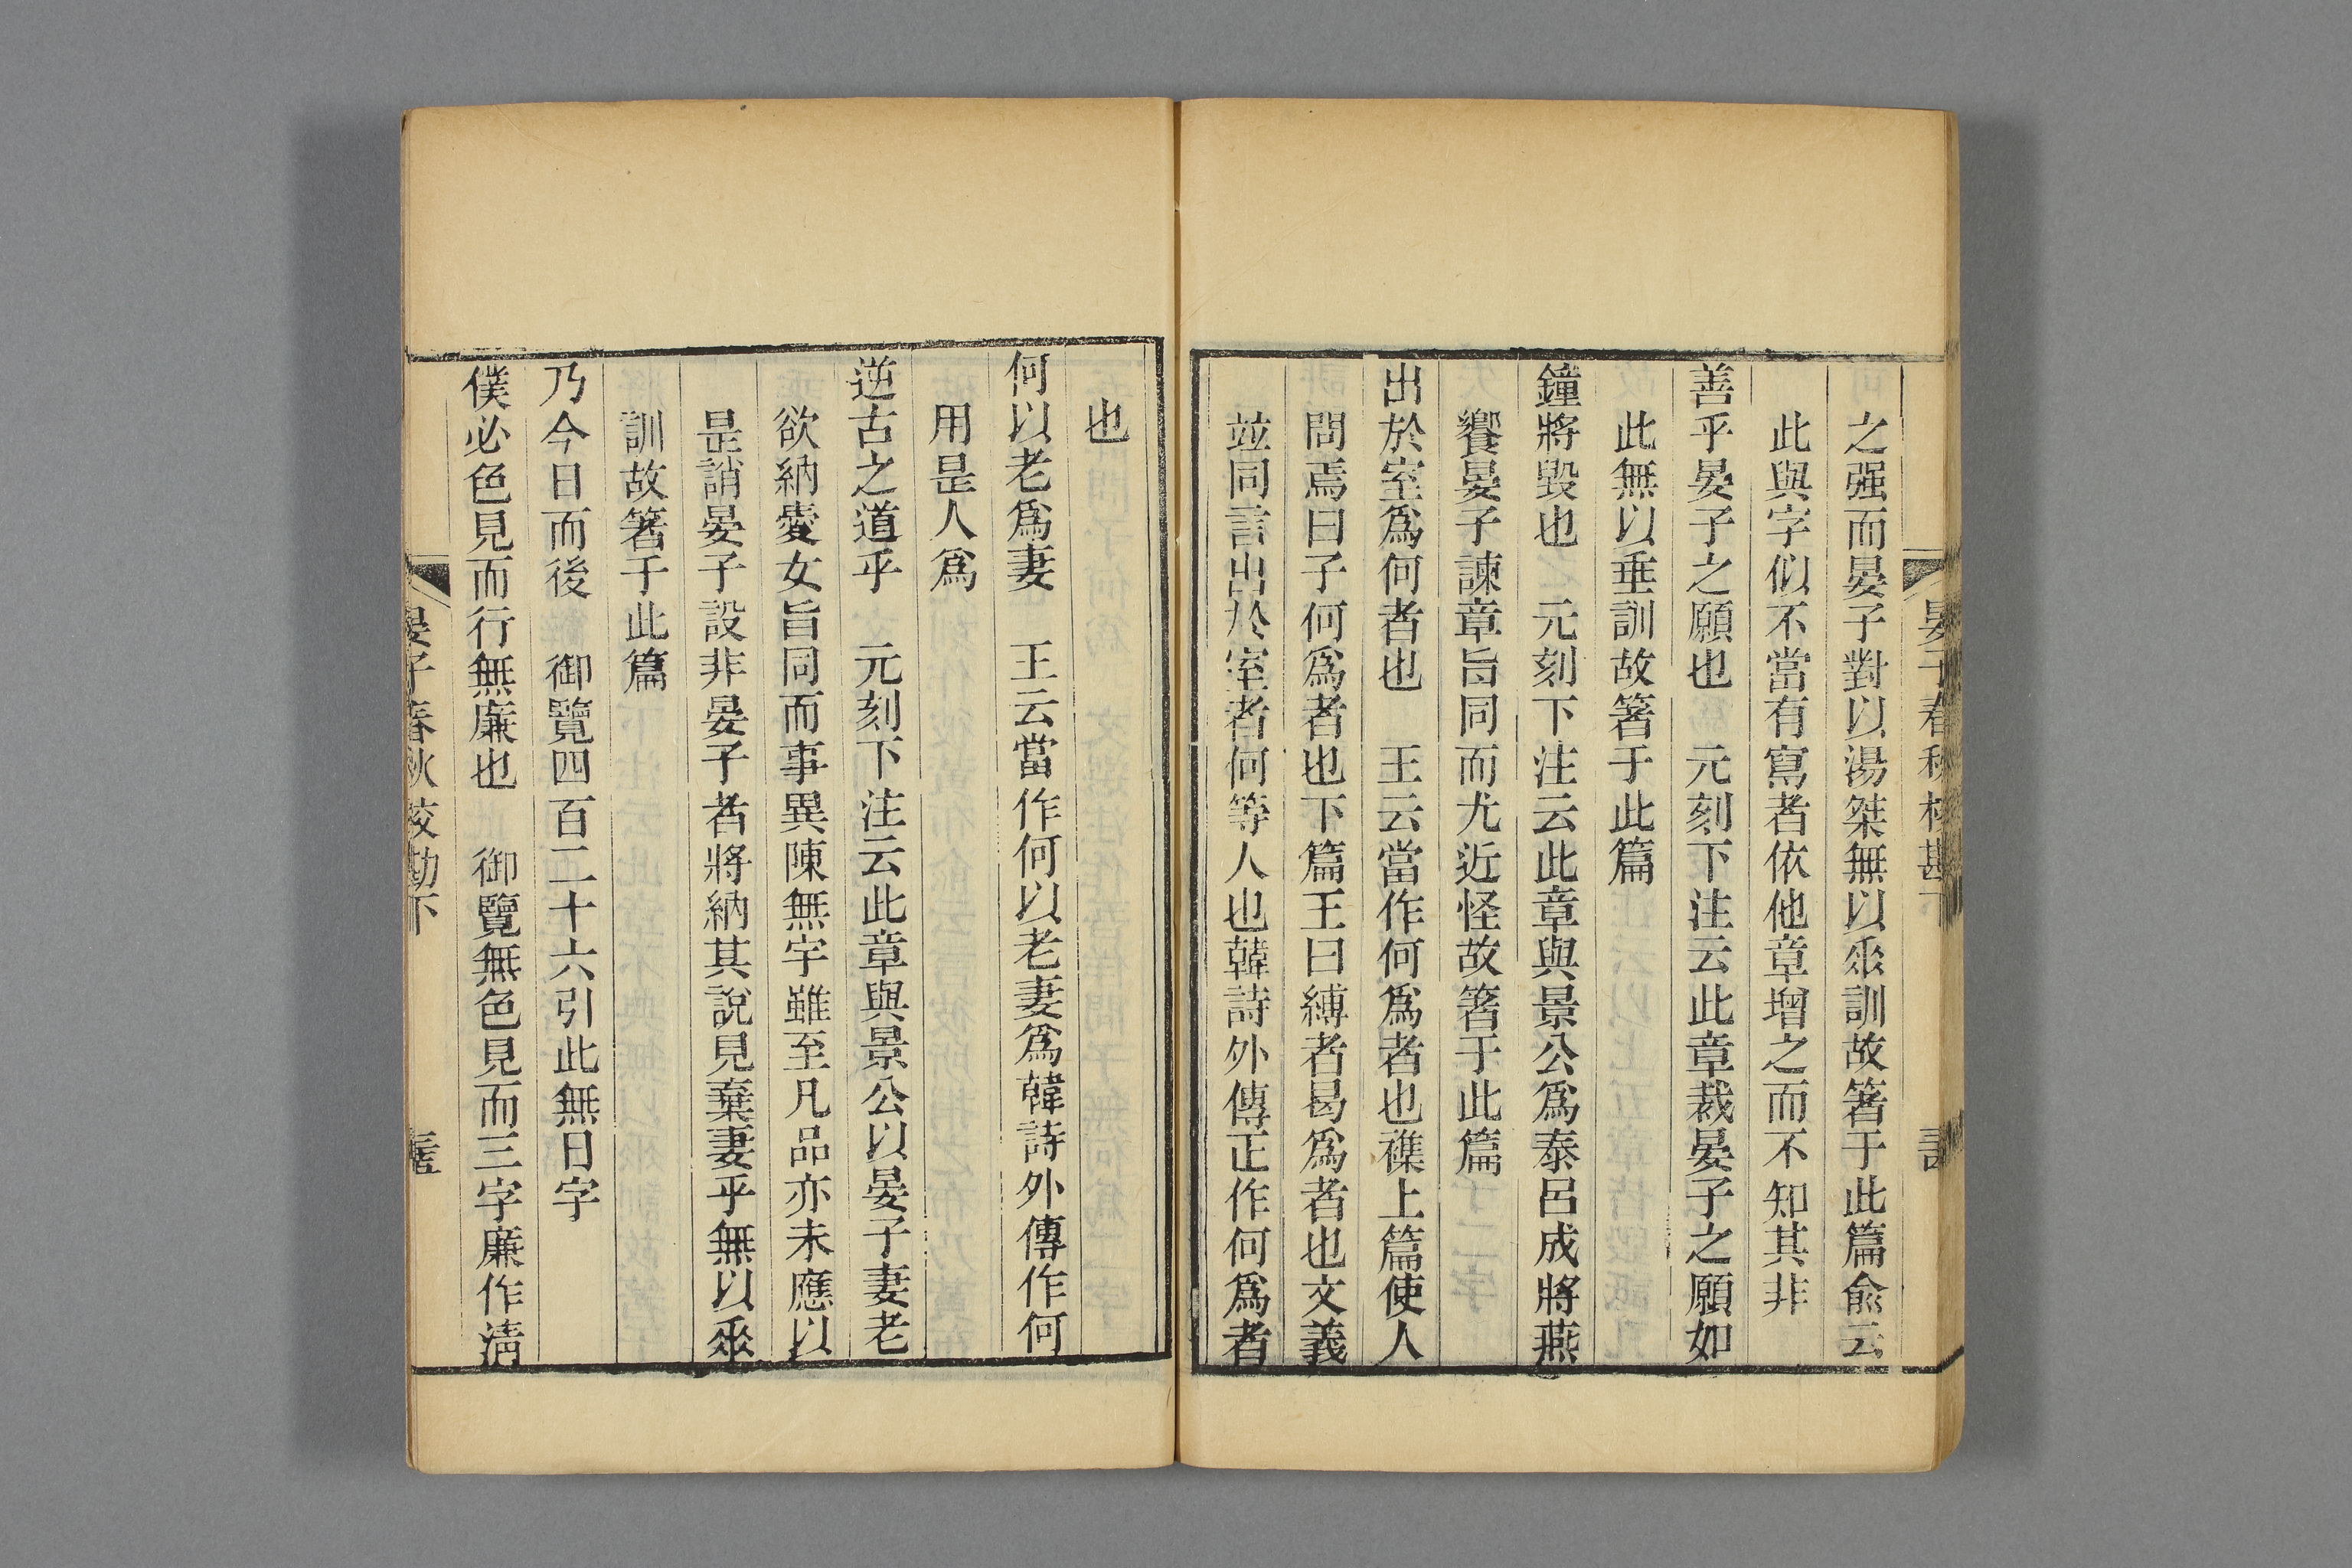 之强而晏子對以湯桀無以𠂹訓故箸于此篇俞云
此與字似不當有寫者依他章增之而不知其非
善乎晏子之願也　元刻下注云此章裁晏子之願如
此無以垂訓故箸于此篇
鐘將毀也　元刻下注云此章與景公爲泰呂成將燕
饗晏子諫章旨同而尤近怪故箸于此篇
出於室爲何者也　王云當作何爲者也襍上篇使人
問焉曰子何爲者也下篇王曰縛者曷爲者也文義
竝同言出於室者何等人也韓詩外傳正作何爲者
也
何以老爲妻　王云當作何以老妻爲韓詩外傳作何
用是人爲
逆古之道乎　元刻下注云此章與景公以晏子妻老
欲納愛女旨同而事異陳無宇雖至凡品亦未應以
是誚晏子設非晏子者將納其說見棄妻乎無以𠂹
訓故箸于此篇
乃今日而後　御覽四百二十六引此無日字
僕必色見而行無廉也　御覽無色見而三字廉作淸
晏子春秋校勘下